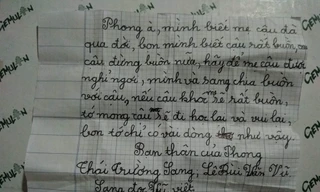 Phong à, mình biết mẹ cậu đã
qua đời, bọn mình biết cậu rất buồn,
cậu đừng buồn nữa, hãy để mẹ cậu được
nghỉ ngơi, mình và sang chia buồn
với cậu, nếu cậu khóc mẹ sẽ rất buồn,
tớ mong cậu sẽ đi học lại và vui lại,
bọn tớ chỉ có vài dòng như vậy.
Bạn thân của Phong
Thái Trường Sang, Lê Bùi Văn Vũ.
Sang do Vũ viết.
GEMILAN